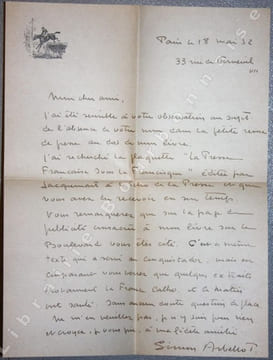 Paris le 18 mai 32
33 rue de
Mon cher ami,
J'ai été sensible à votre observation au sujet
de l'absence de votre nom dans la petite revue
de presse au dos de mon livre.
J'ai recherché la plaquette "La Presse
Française sous la Francisque" éditée par
de la Presse et que
vous avez dû recevoir en son temps.
Vous remarquerez que sur la page de
publicité consacrée à mon livre sur le
vous êtes cité. C'est ce même
texte qui a servi au mais en
comparant vous verrez que quelques extraits
notamment la France Catho. et le Matin
ont sauté sans aucun doute question de place
Ne m'en veuillez pas, je n'y suis pour rien
et croyez, je vous prie, à ma fidèle amitié
Simon Arbellot